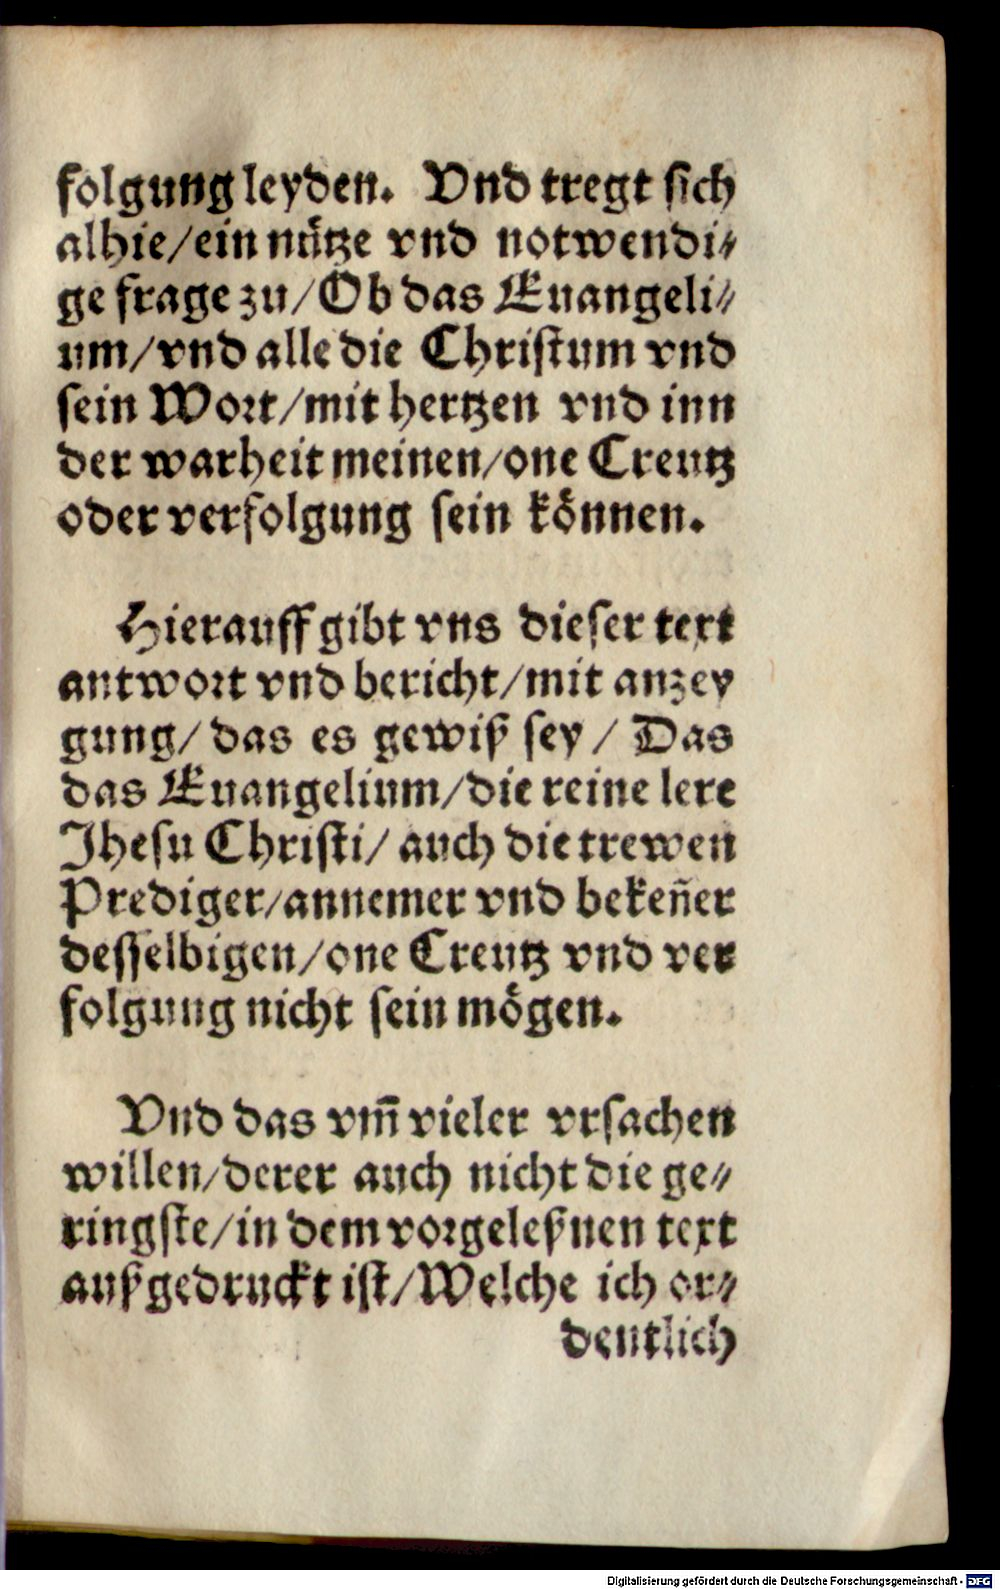 folgung leyden. Vnd tregt sich
alhie/ein nütze vnd notwendi⸗
ge frage zu/Ob das Euangeli⸗
um/vnd alle die Christum vnd
sein Wort/mit hertzen vnd inn
der warheit meinen/one Creutz
oder verfolgung sein können.
Hierauff gibt vns dieser text
antwort vnd bericht/mit anzey
gung/das es gewiß sey/Das
das Euangelium/die reine lere
Jhesu Christi/auch die trewen
Prediger/annemer vnd bekeñer
desselbigen/one Creutz vnd ver
folgung nicht sein mögen.
Vnd das vm̃ vieler vrsachen
willen/derer auch nicht die ge⸗
ringste/in dem vorgeleßnen text
außgedruckt ist/Welche ich or⸗
dentlich
Digitalisierung gefördert durch die Deutsche Forschungsgemeinschaft - DFG